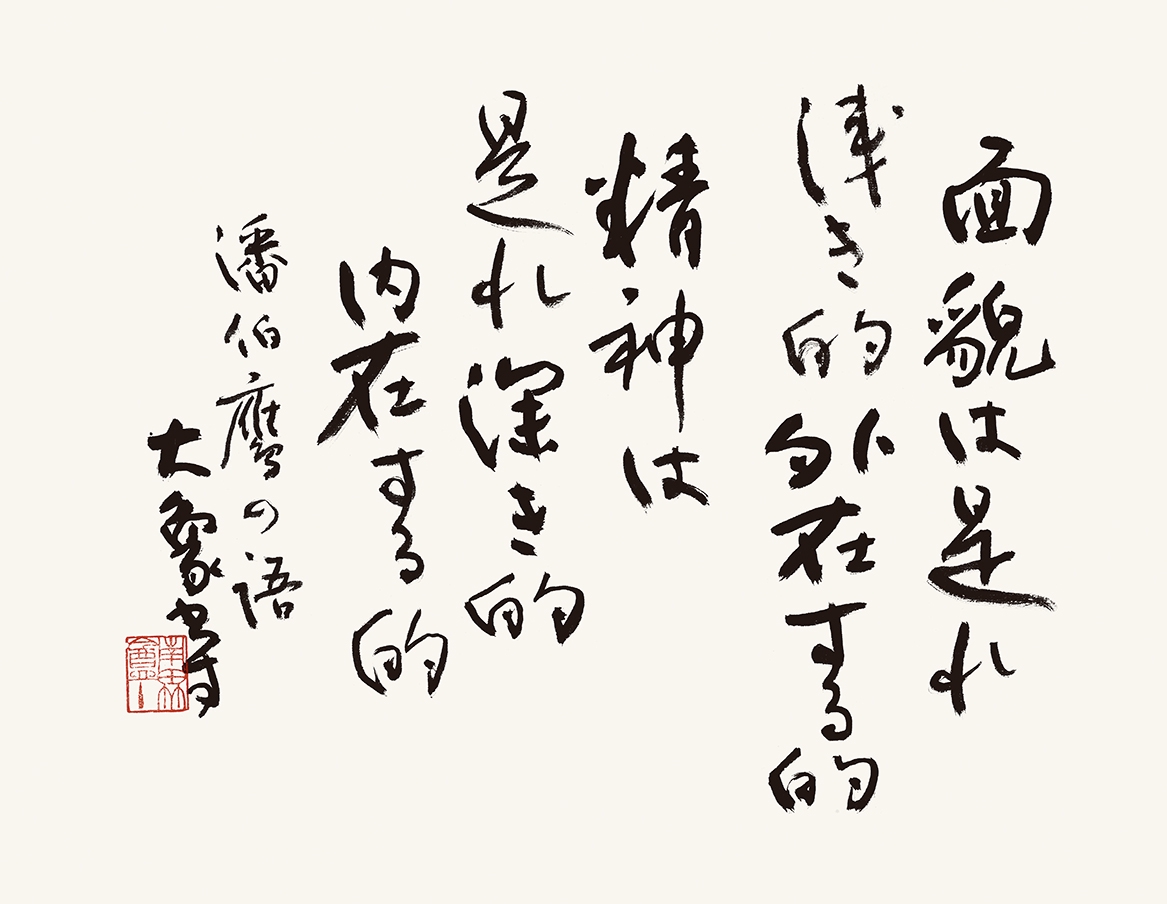 面貌は是れ
浅き的外在する的
精神は
是れ深き的
内在する的
潘伯鷹の語
大象書